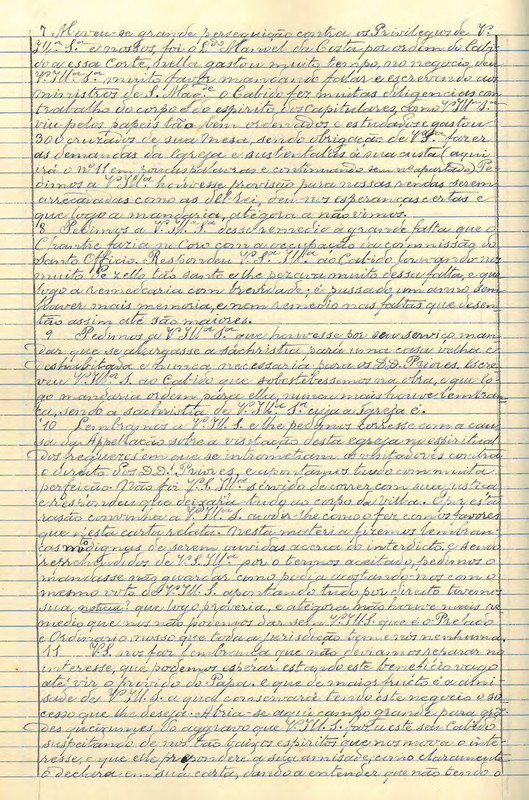 7 Moveu-se grande perseguição contra os Privilegios de V.ª
Ill.ª S.ª e nossos, foi o L.do Manoel da Costa por ordem do Cabi-
do a essa Corte, nella gastou muito tempo, no negocio deu
V.ª Ill.ª S.ª muito favor mandando falar e escrevendo aos
ministros de S. Mag.de o Cabido fez muitas diligencias com
trabalho do corpo e do espirito dos capitulares, como V.ª Ill.ª S.ª
viu pelos papeis tão bem ordenados e estudados e gastou
300 cruzados de sua mesa, sendo obrigação de V.ª S.ª fazer
as demandas da Egreja e sustental-as á sua custa (aqui
irá o nº 11 em poucas palavras e continuando sem nº apartado) Pe-
dimos a V.ª Ill.ª houvesse provisão para nossas rendas serem
arrecadadas como as del rei, deu-nos esperanças certas e
que logo a mandaria, atégora a não vimos.
8 Pedimos a V.ª Ill.ª S.ª desse remedio á grande falta que o
Chantre fazia no Coro com a occupação da commissão do
Santo Officio. Respondeu V.ª S.ª Ill.ª ao Cabido louvando-nos
muito o zello tão santo e lhe pezava muito dessa falta, e que
logo a remedearia com brevidade; é passado um anno sem
haver mais memoria, e nem remedio nas faltas que desen-
tão assim até são maiores.
9 Pedimos a V.ª Ill.ª S.ª que houvesse por seu serviço man-
dar que se alargasse a sachristia para uma casa velha e
deshabitada e nunca necessaria para os DD. Priores. Escre-
veu V.ª Ill.ª S.ª ao Cabido que sobestivessemos na obra, e que lo-
go mandaria ordem para ella, nunca mais houve lembran-
ça, sendo a sachristia de V.ª Ill.ª S.ª cuja a Egreja é.
10 Lembramos a V.ª Ill.ª S. e lhe pedimos corresse com a cau-
sa da Appellação sobre a visitação desta egreja no espiritual
dos freguezes em que se intrometiam os visitadores contra
o direito dos DD. Priores, e apontamos tudo com muita
perfeição. Não foi V.S. Ill.ª servido de correr com sua justiça
e respondeu que deixaria tudo ao corpo da villa. E por esta
rasão convinha a V.ª Ill.ª S. acodir-lhe como fez com os favores
que nesta carta relata. Nesta materia fizemos lembran-
ças mto dignas de serem ouvidas acerca do interdicto, e sendo
reprehendidos de V.ª S.ª Ill.ª por o termos aceitado, pedimos o
mandasse não guardar como podia acostando-nos com o
mesmo voto de V.ª Ill.ª S. apontando tudo por directo tivemos
sua noticia: que logo proveria, e atégora não houve mais re-
medio que nos não podemos dar sem V.ª Ill.ª S. que é o Prelado
e Ordinario nosso que toda a jurisdicção tem e nós nenhuma.
11 V.ª S. nos faz lembrança que não deviamos reparar no
interesse, que podemos esperar estando este beneficio vago
até vir o provido do Papa. e que de mais fructo é a ami-
sade de V.ª Ill.ª S. a qual conservará tendo este negocio o suc-
cesso que lhe deseja. Abria-se aqui campo grande para gran-
des queixumes do aggravo que V.ª Ill.ª S. faz a este seu Cabido
suspeitando de nós tão baixos espiritos que nos mova o inte-
resse, e que elle preponderе a sua amisade, como claramente
o declara em sua carta, dando a entender que não tendo o